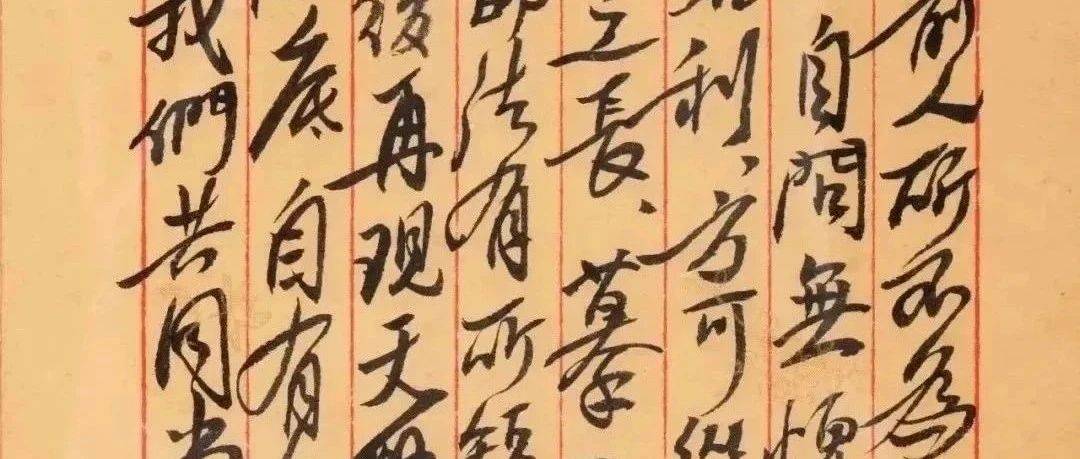 前人所不為
自問無愧
名利、方可從
之長、摹
部法有所領
後再現天
底自有
我們共同